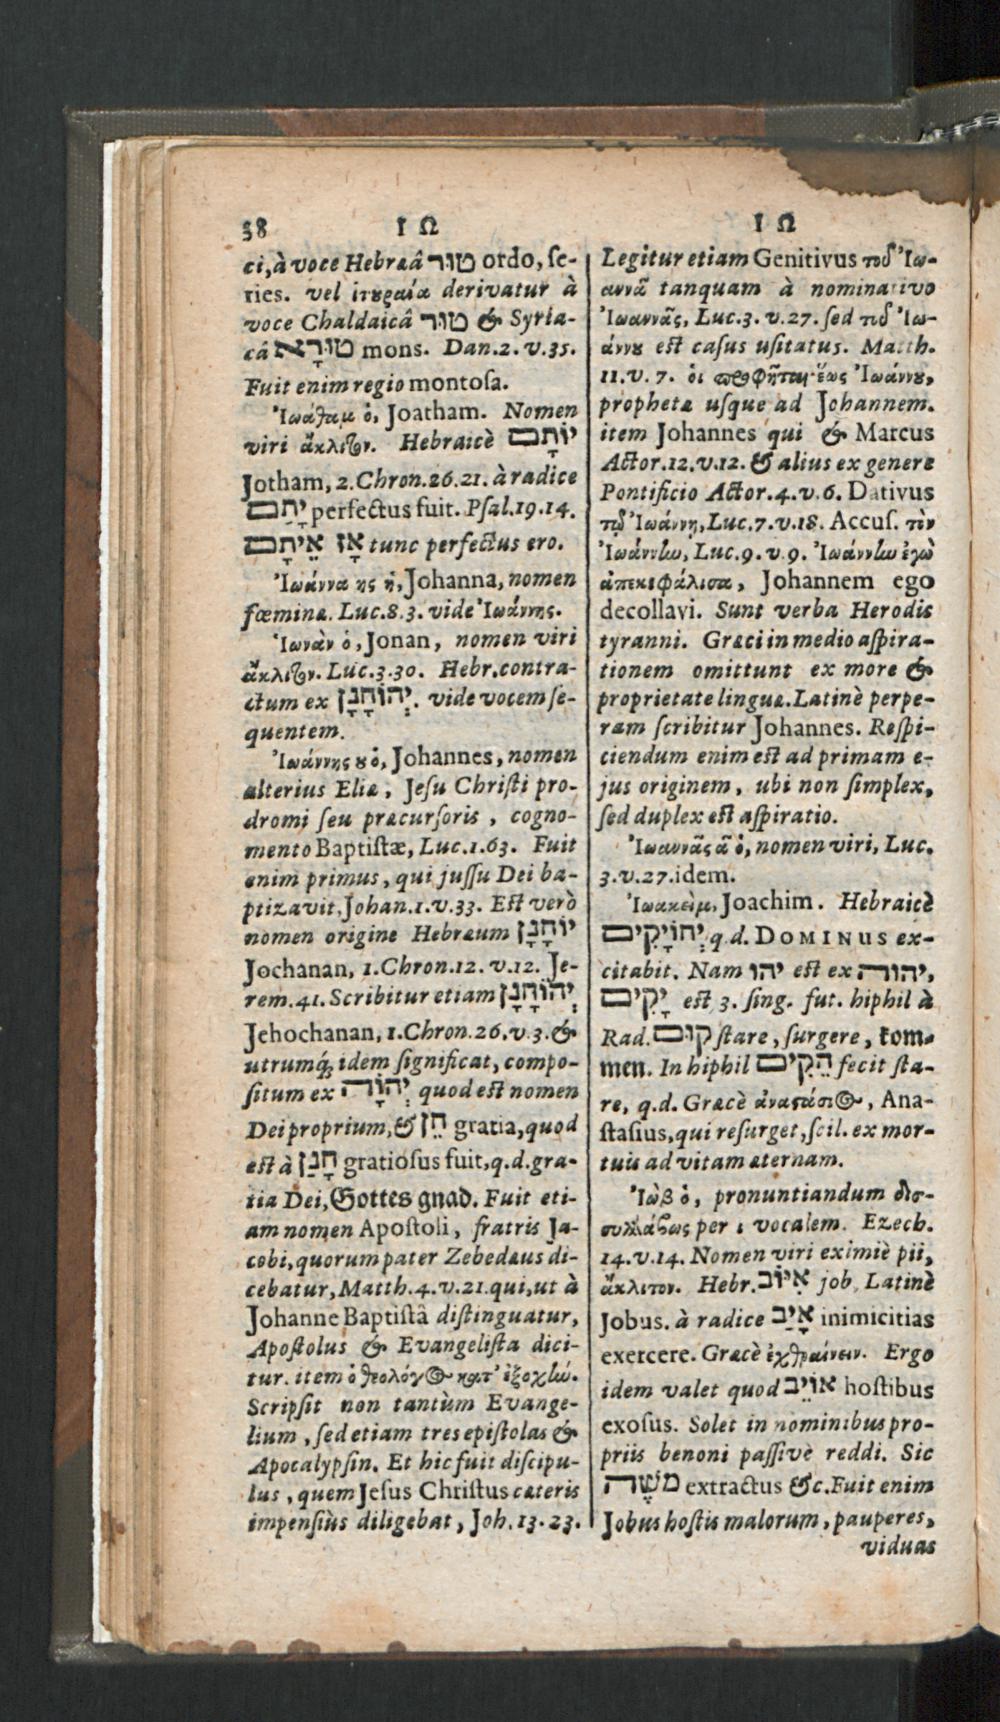 38 Ι Ω
ci, à voce Hebræâ טור ordo, ſe-
ries. vel ἰτουραία derivatur à
voce Chaldaicâ טור & Syria-
câ טוּרָא mons. Dan.2.v.35.
Fuit enim regio montoſa.
Ἰωάθαμ ὁ, Joatham. Nomen
viri ἄκλιτον. Hebraicè יוֹתָם
Jotham, 2.Chron.26.21. à radice
יָתַם perfectus fuit. Pſal.19.14.
אָז אֵיתָם tunc perfectus ero.
Ἰωάννα ης ἡ, Johanna, nomen
fœminæ. Luc.8.3. vide Ἰωάννης.
Ἰωνὰν ὁ, Jonan, nomen viri
ἄκλιτον. Luc.3.30. Hebr. contra-
ctum ex יְהוֹחָנָן. vide vocem ſe-
quentem.
Ἰωάννης ου ὁ, Johannes, nomen
alterius Eliæ, Jeſu Chriſti pro-
dromi ſeu præcurſoris, cogno-
mento Baptiſtæ, Luc.1.63. Fuit
enim primus, qui juſſu Dei ba-
ptizavit, Johan.1.v.33. Eſt verò
nomen origine Hebræum יוֹחָנָן
Jochanan, 1.Chron.12.v.12. Je-
rem.41. Scribitur etiam יְהוֹחָנָן
Jehochanan, 1.Chron.26.v.3. &
utrumq́; idem ſignificat, compo-
ſitum ex יְהוָֹה quod eſt nomen
Dei proprium, & חֵן gratia, quod
eſt à חָנַן gratioſus fuit, q.d. gra-
tia Dei, Gottes gnad. Fuit eti-
am nomen Apoſtoli, fratris Ja-
cobi, quorum pater Zebedæus di-
cebatur, Matth.4.v.21. qui, ut à
Johanne Baptiſtâ diſtinguatur,
Apoſtolus & Evangeliſta dici-
tur. item ὁ θεολόγος κατ' ἐξοχὴν.
Scripſit non tantùm Evange-
lium, ſed etiam tres epiſtolas &
Apocalypſin. Et hic fuit diſcipu-
lus, quem Jeſus Chriſtus cæteris
impenſiùs diligebat, Joh.13.23.
Ι Ω
Legitur etiam Genitivus τοῦ Ἰω-
αννᾶ tanquam à nominativo
Ἰωαννᾶς, Luc.3.v.27. ſed τοῦ Ἰω-
άννου eſt caſus uſitatus. Matth.
11.v.7. οἱ προφῆται ἕως Ἰωάννου,
prophetæ uſque ad Johannem.
item Johannes qui & Marcus
Actor.12.v.12. & alius ex genere
Pontificio Actor.4.v.6. Dativus
τῷ Ἰωάννῃ, Luc.7.v.18. Accuſ. τὸν
Ἰωάννην, Luc.9.v.9. Ἰωάννην ἐγὼ
ἀπεκεφάλισα, Johannem ego
decollavi. Sunt verba Herodis
tyranni. Græci in medio aſpira-
tionem omittunt ex more &
proprietate linguæ. Latinè perpe-
ram ſcribitur Johannes. Reſpi-
ciendum enim eſt ad primam e-
jus originem, ubi non ſimplex,
ſed duplex eſt aſpiratio.
Ἰωαννᾶς ᾶ ὁ, nomen viri, Luc.
3.v.27. idem.
Ἰωακείμ, Joachim. Hebraicè
יְהוֹיָקִים q.d. DOMINUS ex-
citabit. Nam יהו eſt ex יהוה,
יָקִים eſt 3. ſing. fut. hiphil à
Rad. קוּם ſtare, ſurgere, kom-
men. In hiphil הֵקִים fecit ſta-
re, q.d. Græcè ἀναστάσιος, Ana-
ſtaſius, qui reſurget, ſcil. ex mor-
tuis ad vitam æternam.
Ἰὼβ ὁ, pronuntiandum δισ-
συλλάβως per ι vocalem. Ezech.
14.v.14. Nomen viri eximiè pii,
ἄκλιτον. Hebr. אִיּוֹב job, Latinè
Jobus. à radice אָיַב inimicitias
exercere. Græcè ἐχθραίνειν. Ergo
idem valet quod אוֹיֵב hoſtibus
exoſus. Solet in nominibus pro-
priis benoni paſſivè reddi. Sic
משֶׁה extractus &c. Fuit enim
Jobus hoſtis malorum, pauperes,
viduas